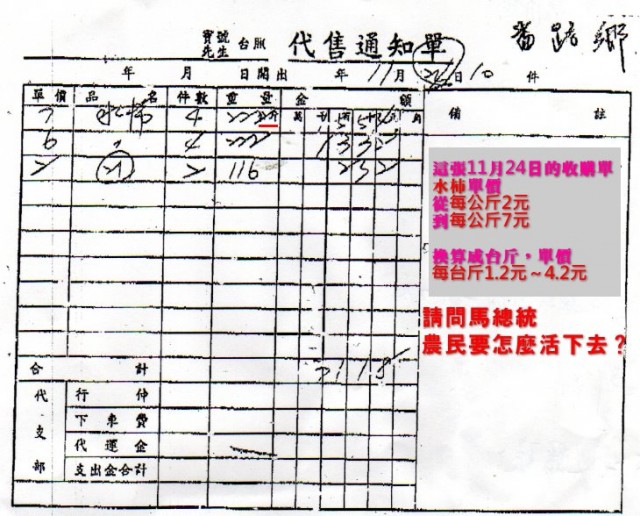 寶號
先生 台照 代售通知單 番路鄉
年 月 日開出 年 11月 24日 10 件
單價 品名 件數 重量 金額 備註
萬 千 百 十 元 角
7 水柿 4 222公斤
6 〃 4 222 1 3 3 2
2 21 2 116 2 3 2
這張11月24日的收購單
水柿單價
從每公斤2元
到每公斤7元
換算成台斤，單價
每台斤1.2元～4.2元
請問馬總統
農民要怎麼活下去？
合計 3 1 1 8
代支部
行仲
下車費
代運金
支出金合計